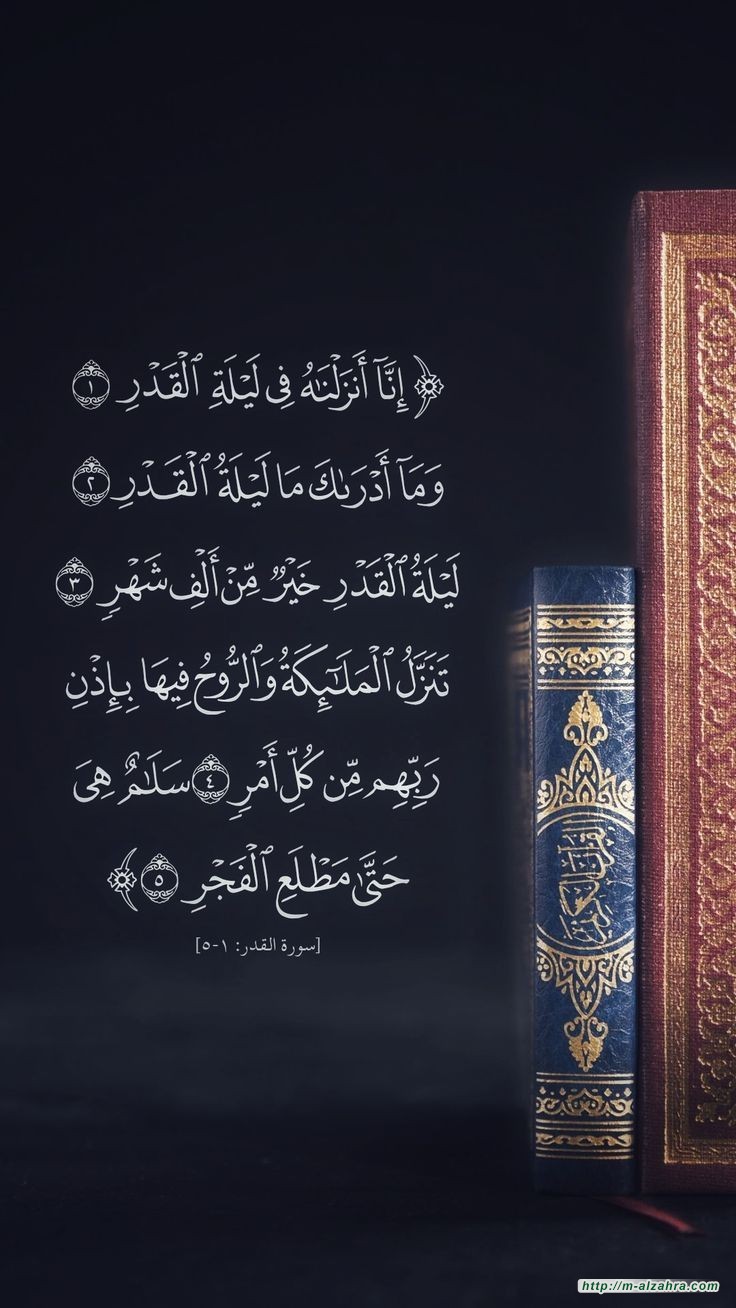 ﴿ إِنَّآ أَنزَلْنَٰهُ فِى لَيْلَةِ ٱلْقَدْرِ ١
وَمَآ أَدْرَىٰكَ مَا لَيْلَةُ ٱلْقَدْرِ ٢
لَيْلَةُ ٱلْقَدْرِ خَيْرٌ مِّنْ أَلْفِ شَهْرٍ ٣
تَنَزَّلُ ٱلْمَلَٰٓئِكَةُ وَٱلرُّوحُ فِيهَا بِإِذْنِ
رَبِّهِم مِّن كُلِّ أَمْرٍ ٤ سَلَٰمٌ هِىَ
حَتَّىٰ مَطْلَعِ ٱلْفَجْرِ ٥ ﴾
[سورة القدر: ١-٥]
القرآن الكريم
http://m-alzahra.com